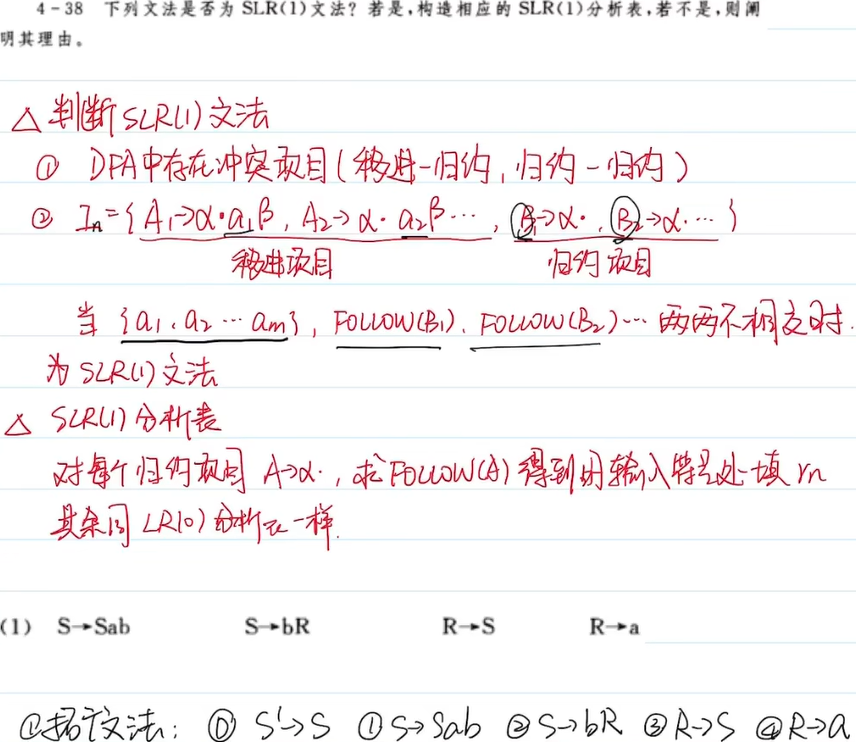 4-38 下列文法是否为 SLR(1)文法? 若是,构造相应的 SLR(1)分析表,若不是,则阐
明其理由。
△ 判断SLR(1)文法
① DFA中存在冲突项目(移进-归约,归约-归约)
② In={A1→α·a1β, A2→α·a2β…, B1→α·, B2→α·…}
移进项目 归约项目
当 {a1, a2 … am}, FOLLOW(B1), FOLLOW(B2)… 两两不相交时.
为SLR(1)文法
△ SLR(1)分析表
对每个归约项目 A→α·, 求FOLLOW(A)得到的输入符号处填 rn
其余同LR(0)分析表一样.
(1) S→Sab S→bR R→S R→a
①拓广文法: ⓪ S'→S ①S→Sab ②S→bR ③R→S ④R→a